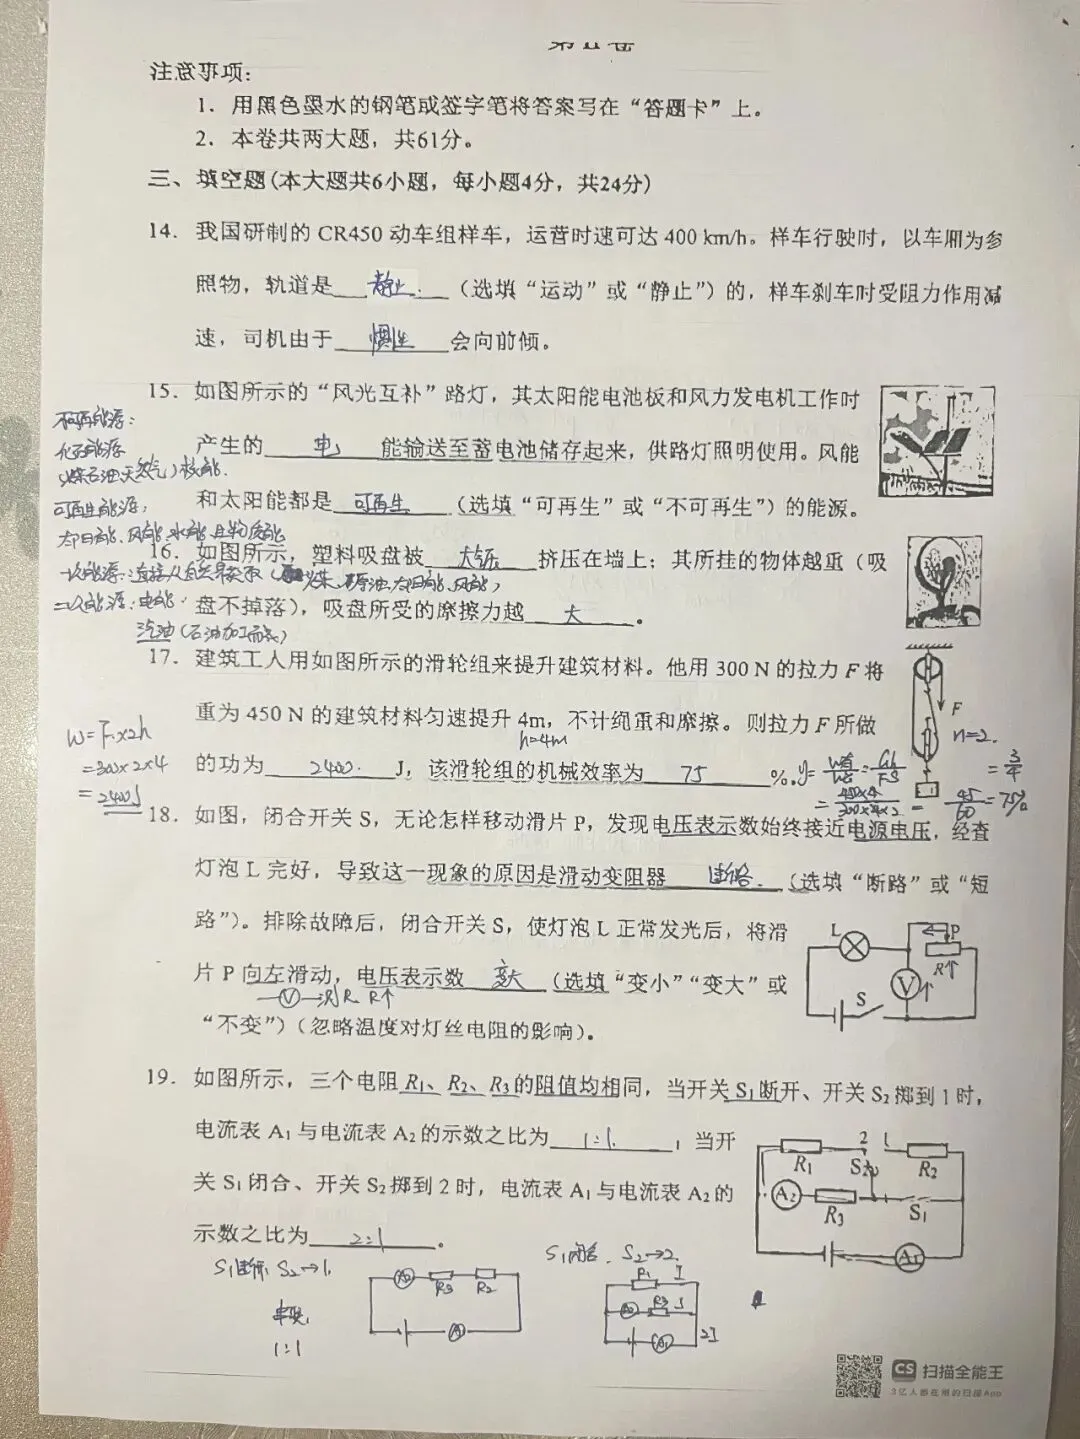 第II卷
注意事项:
1. 用黑色墨水的钢笔或签字笔将答案写在“答题卡”上。
2. 本卷共两大题, 共61分。
三、填空题(本大题共6小题, 每小题4分, 共24分)
14. 我国研制的 CR450 动车组样车, 运营时速可达 400 km/h。样车行驶时, 以车厢为参
照物, 轨道是 静止 (选填“运动”或“静止”)的, 样车刹车时受阻力作用减
速, 司机由于 惯性 会向前倾。
15. 如图所示的“风光互补”路灯, 其太阳能电池板和风力发电机工作时
产生的 电 能输送至蓄电池储存起来, 供路灯照明使用。风能
和太阳能都是 可再生 (选填“可再生”或“不可再生”)的能源。
不可再能源:
化石能源
(煤石油天然气)核能.
可再生能源:
太阳能、风能、水能、生物质能
16. 如图所示, 塑料吸盘被 大气压 挤压在墙上; 其所挂的物体越重(吸
一次能源: 直接从自然界获取
盘不掉落), 吸盘所受的摩擦力越 大 。
二次能源: 电能.
汽油(石油加工而来)
17. 建筑工人用如图所示的滑轮组来提升建筑材料。他用 300 N 的拉力 F 将
重为 450 N 的建筑材料匀速提升 4m, 不计绳重和摩擦。则拉力 F 所做
h=4m
的功为 2400. J, 该滑轮组的机械效率为 75 %.
W=F.x2h
=300x2x4
=2400J
F
n=2.
η=W有/W总=Gh/FS=3/4
=450x4/300x4x2=45/60=75%
18. 如图, 闭合开关 S, 无论怎样移动滑片 P, 发现电压表示数始终接近电源电压, 经查
灯泡 L 完好, 导致这一现象的原因是滑动变阻器 断路. (选填“断路”或“短
路”)。排除故障后, 闭合开关 S, 使灯泡 L 正常发光后, 将滑
片 P 向左滑动, 电压表示数 变大 (选填“变小”“变大”或
V 测R R↑
“不变”)(忽略温度对灯丝电阻的影响)。
L
P
R↑
V↑
S
19. 如图所示, 三个电阻 R1、R2、R3的阻值均相同, 当开关 S1断开、开关 S2掷到 1 时,
电流表 A1 与电流表 A2 的示数之比为 1:1. ; 当开
关 S1 闭合、开关 S2 掷到 2 时, 电流表 A1 与电流表 A2 的
示数之比为 2:1 。
R1
2
1
S2
R2
A2
R3
S1
A1
S1断开, S2→1.
串联,
1:1
A2
R3
R2
A
S1闭合. S2→2.
R1 I
A2 R3 I
A1 2I
CS 扫描全能王
3亿人都在用的扫描App